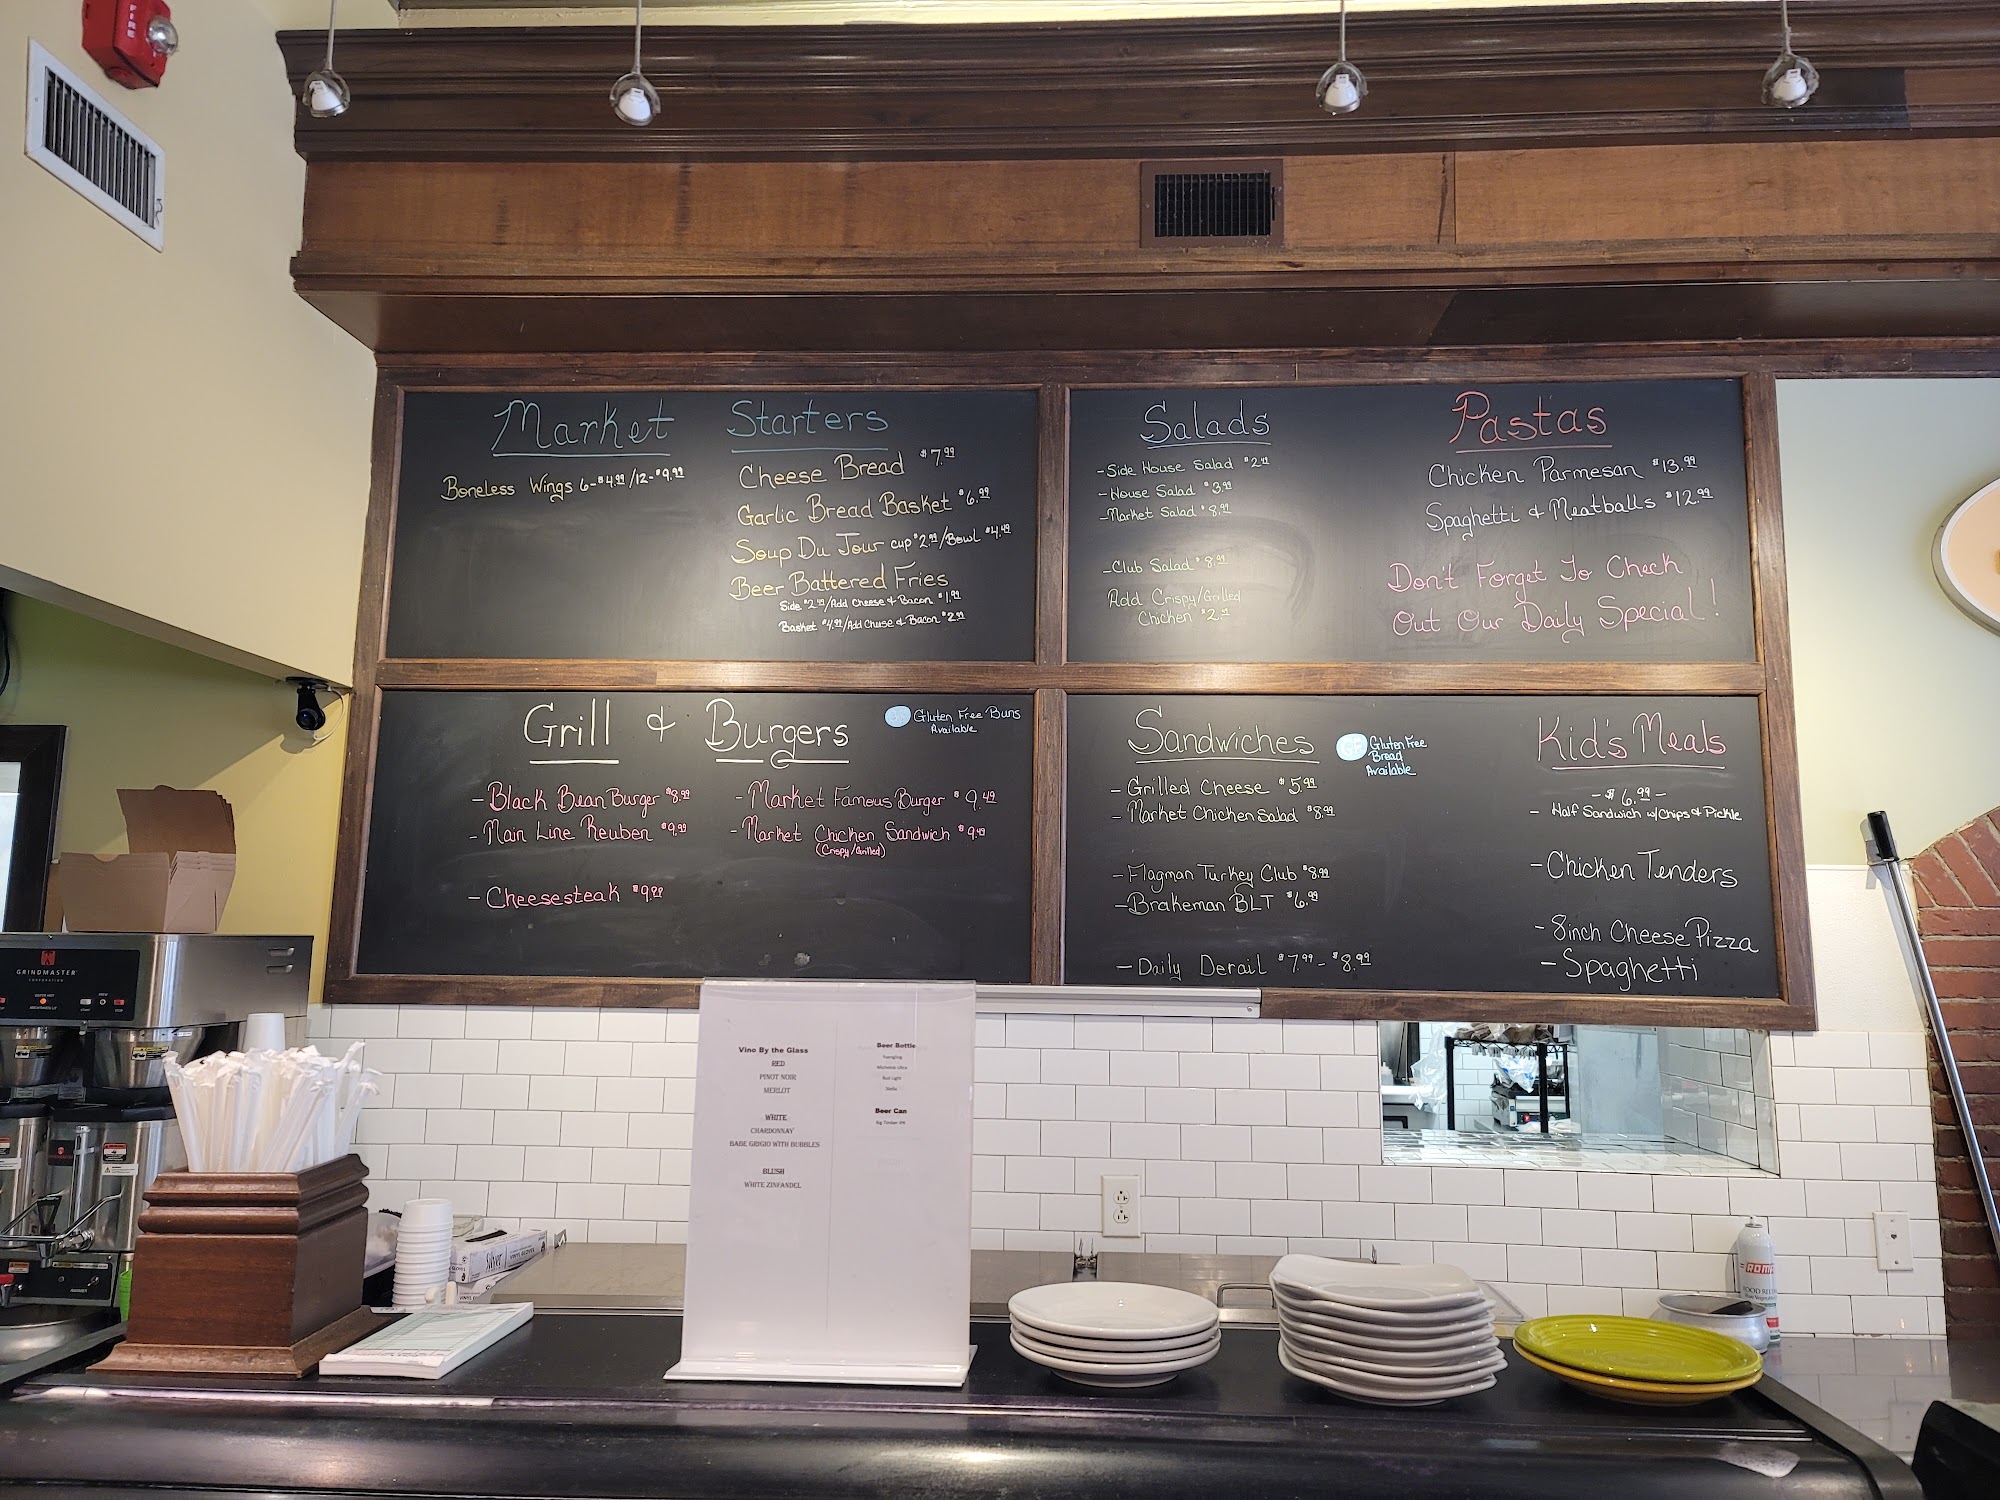 FIRE
Market
Boneless Wings 6-$4.99/12-$9.99
Starters
Cheese Bread $7.99
Garlic Bread Basket $6.99
Soup Du Jour cup $2.99/Bowl $4.49
Beer Battered Fries
Side $2.49/Add Cheese & Bacon $1.99
Basket $4.99/Add Cheese & Bacon $2.99
Salads
-Side House Salad $2.49
-House Salad $3.99
-Market Salad $8.99
-Club Salad $8.99
Add Crispy/Grilled
Chicken
Pastas
Chicken Parmesan $13.99
Spaghetti & Meatballs $12.99
Don't Forget To Check
Out Our Daily Special!
Grill & Burgers
GF Gluten Free Buns
Available
-Black Bean Burger $8.99
-Main Line Reuben $9.99
-Cheesesteak $9.99
-Market Famous Burger $9.49
-Market Chicken Sandwich $9.49
(Crispy/Grilled)
Sandwiches
GF Gluten Free
Bread
Available
-Grilled Cheese $5.99
-Market Chicken Salad $8.99
-Flagman Turkey Club $8.99
-Brakeman BLT $6.99
-Daily Derail $7.99-$8.99
Kid's Meals
-$6.99-
- Half Sandwich w/Chips & Pickle
-Chicken Tenders
-8inch Cheese Pizza
-Spaghetti
GRINDMASTER
CORPORATION
Vino By the Glass
RED
PINOT NOIR
MERLOT
WHITE
CHARDONNAY
BABE GRIGIO WITH BUBBLES
BLUSH
WHITE ZINFANDEL
Beer Bottle
Yuengling
Michelob Ultra
Bud Light
Stella
Beer Can
Big Timber IPA
VINYL GLOVES